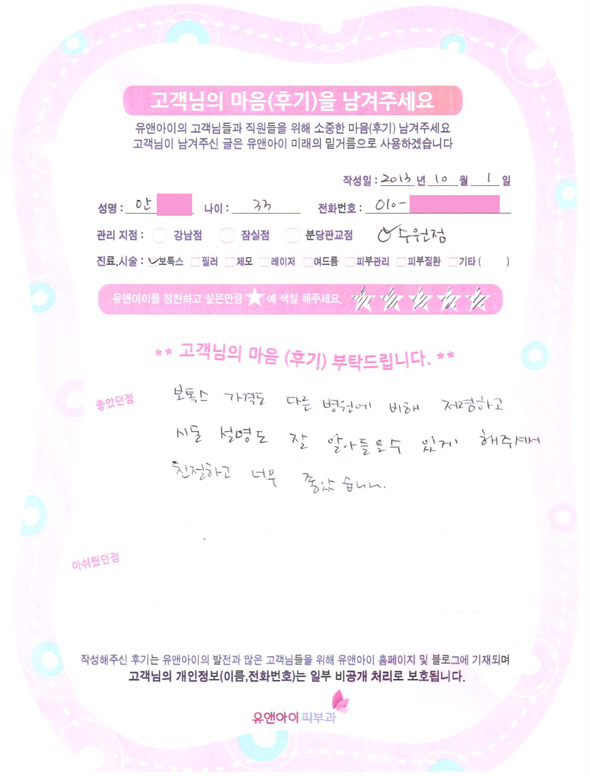 고객님의 마음(후기)을 남겨주세요
유앤아이의 고객님들과 직원들을 위해 소중한 마음(후기) 남겨주세요
고객님이 남겨주신 글은 유앤아이 미래의 밑거름으로 사용하겠습니다
작성일 : 2013 년 10 월 1 일
성명 : 안 나이 : 33 전화번호 : 010-
관리 지점 : 강남점 잠실점 분당판교점 수원점
진료.시술 : 보톡스 필러 제모 레이저 여드름 피부관리 피부질환 기타 ( )
유앤아이를 칭찬하고 싶은만큼 ★에 색칠 해주세요. ★★★★★
** 고객님의 마음 (후기) 부탁드립니다. **
좋았던점
보톡스 가격도 다른 병원에 비해 저렴하고
시술 설명도 잘 알아들을수 있게 해주셔서
친절하고 너무 좋았습니다.
아쉬웠던점
작성해주신 후기는 유앤아이의 발전과 많은 고객님들을 위해 유앤아이 홈페이지 및 블로그에 기재되며
고객님의 개인정보(이름,전화번호)는 일부 비공개 처리로 보호됩니다.
유앤아이 피부과